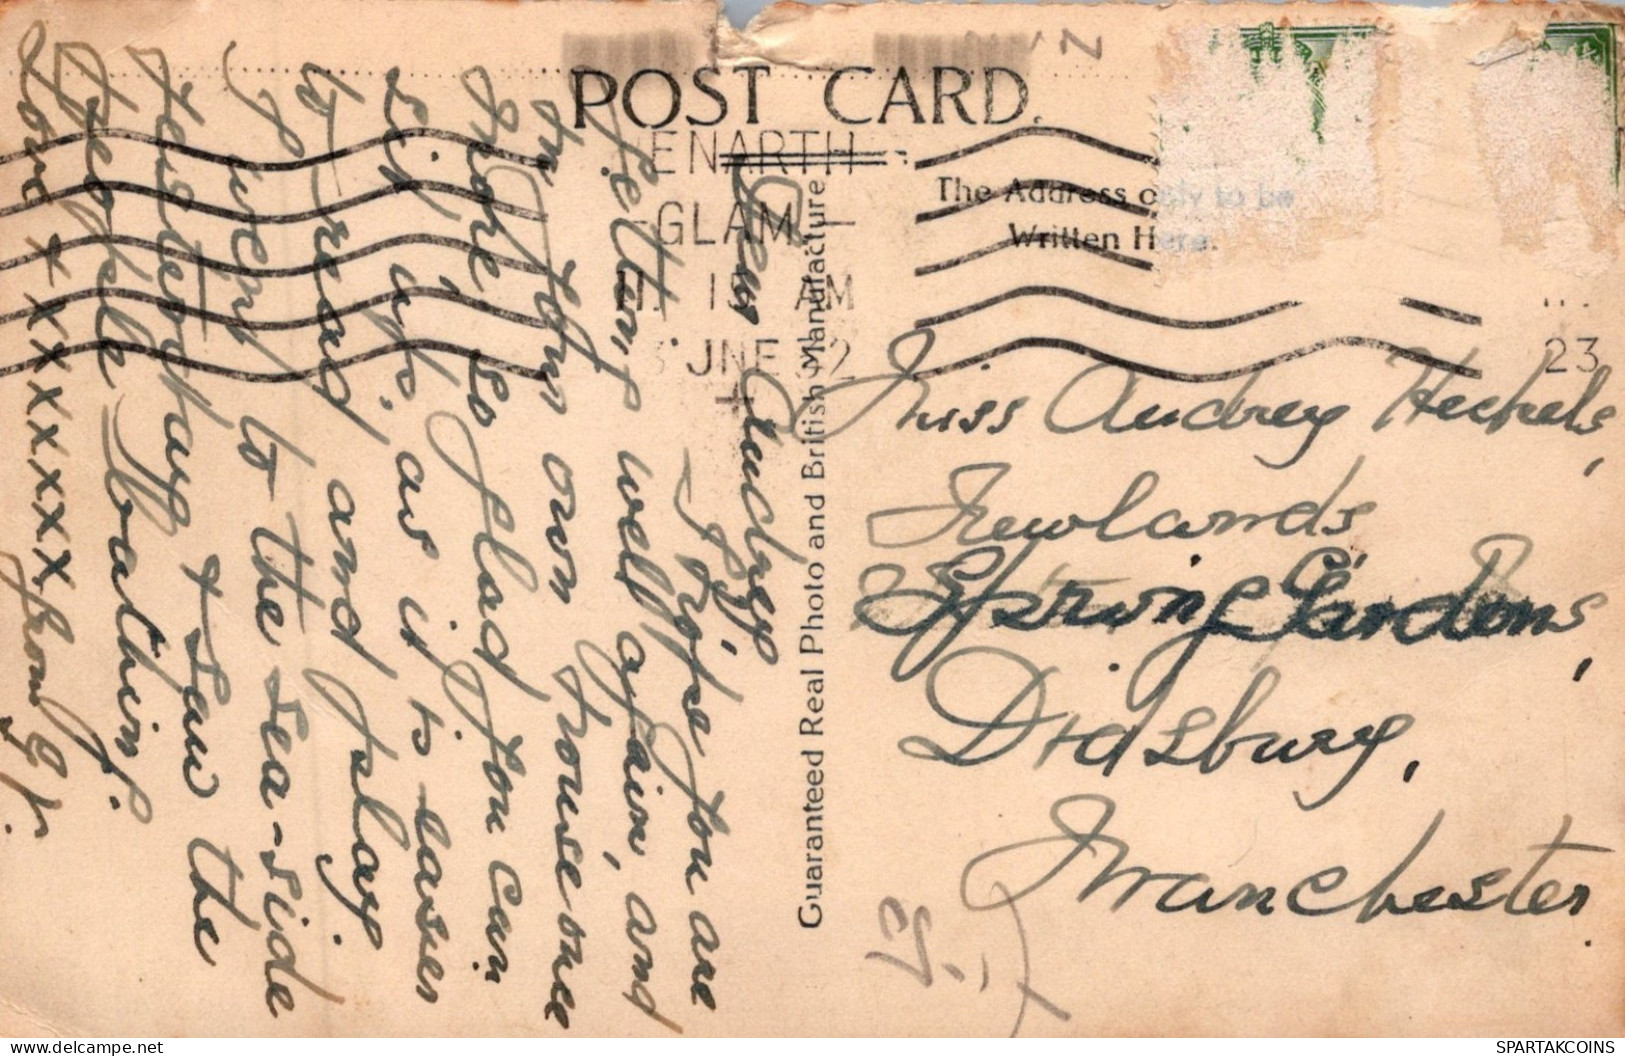 POST CARD.
ENARTH
GLAM
15 AM
JNE 32
The Address only to be
Written Here.
23
Guaranteed Real Photo and British Manufacture
Miss Audrey
Newlands
Spring Gardens,
Didsbury,
Manchester.
Dear Audrey,
I hope you are
getting well again, and
in your own house once
more. So glad you can
sit up, as it is easier
to read and play.
I went to the sea-side
yesterday & saw the
people bathing.
Love xxxxxxxx from
SPARTAKCOINS